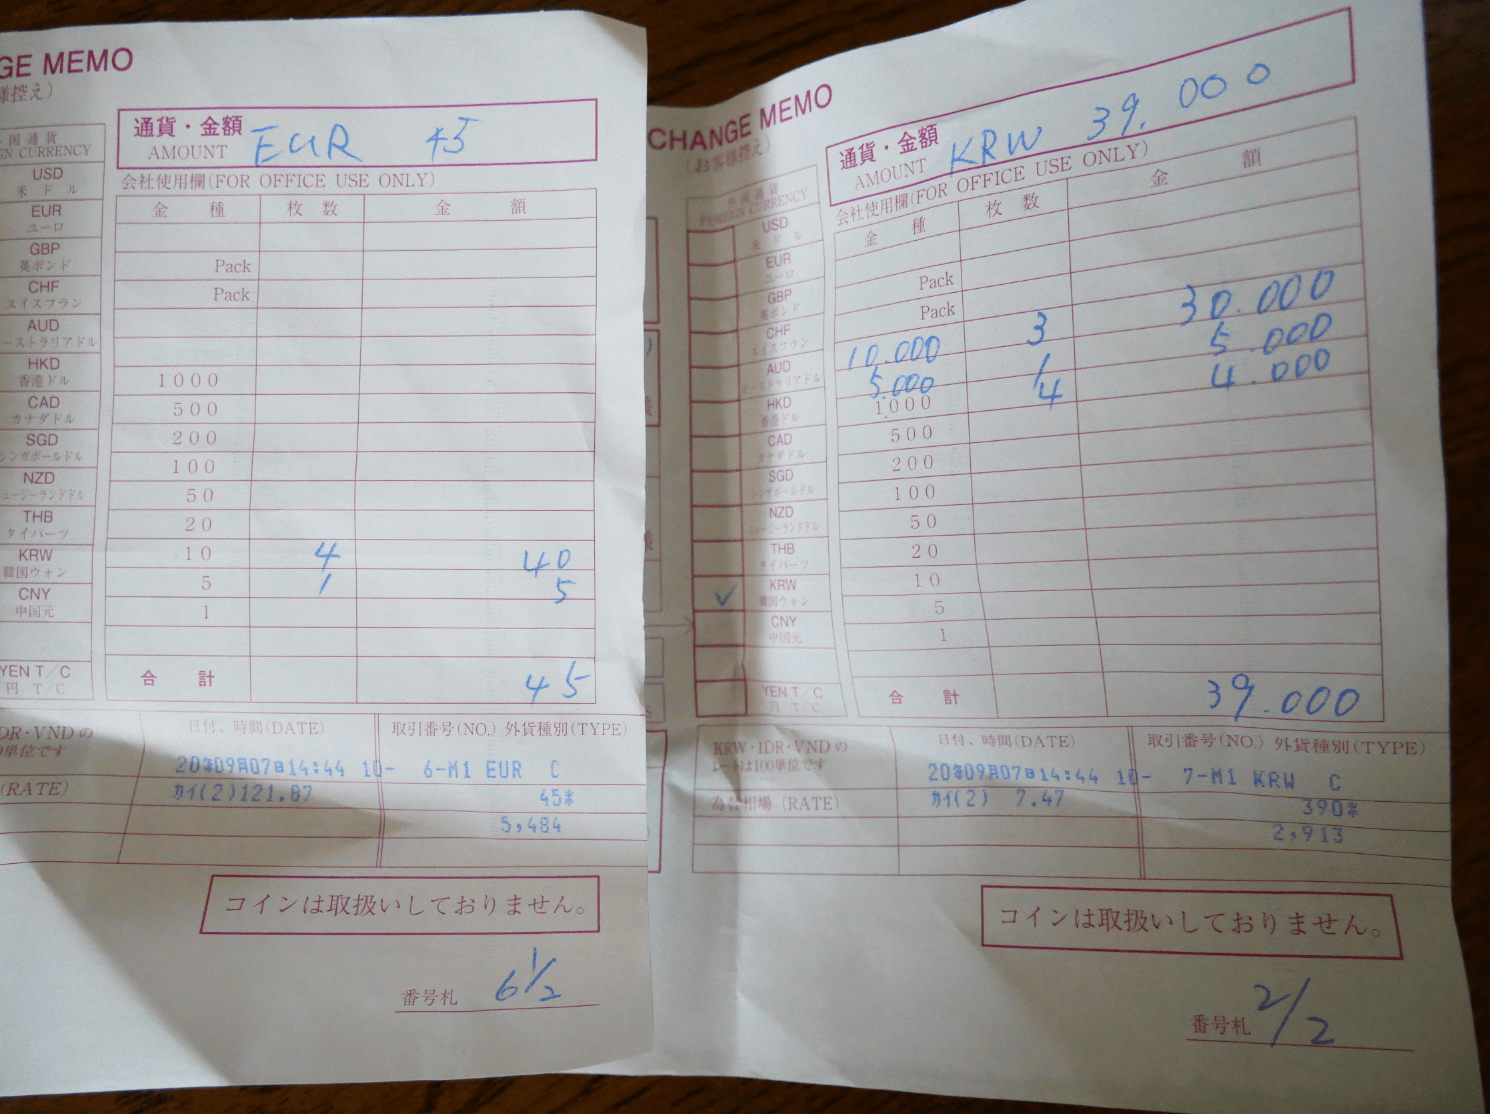 GE MEMO
様控え)
国通貨
GN CURRENCY
USD
米ドル
EUR
ユーロ
GBP
英ポンド
CHF
スイスフラン
AUD
ーストラリアドル
HKD
香港ドル
CAD
カナダドル
SGD
シンガポールドル
NZD
ュージーランドドル
THB
タイバーツ
KRW
韓国ウォン
CNY
中国元
YEN T/C
円 T/C
通貨・金額
AMOUNT EUR 45
会社使用欄(FOR OFFICE USE ONLY)
金種 枚数 金額
Pack
Pack
1000
500
200
100
50
20
10 4 40
5 1 5
1
合計 45
DR・VNDの
0単位です
日付、時間(DATE) 取引番号(NO.) 外貨種別(TYPE)
20年09月07日14:44 10- 6-M1 EUR C
(RATE) カイ(2)121.87 45*
5,484
コインは取扱いしておりません。
番号札 6 1/2
CHANGE MEMO
(お客様控え)
外国通貨
FOREIGN CURRENCY
USD
米ドル
EUR
ユーロ
GBP
英ポンド
CHF
スイスフラン
AUD
オーストラリアドル
HKD
香港ドル
CAD
カナダドル
SGD
シンガポールドル
NZD
ニュージーランドドル
THB
タイバーツ
✓ KRW
韓国ウォン
CNY
中国元
YEN T/C
円 T/C
通貨・金額
AMOUNT KRW 39.000
会社使用欄(FOR OFFICE USE ONLY)
金種 枚数 金額
Pack
Pack
10.000 3 30.000
5.000 1 5.000
1000 4 4.000
500
200
100
50
20
10
5
1
合計 39.000
KRW・IDR・VNDの
レートは100単位です
日付、時間(DATE) 取引番号(NO.) 外貨種別(TYPE)
20年09月07日14:44 10- 7-M1 KRW C
為替相場 (RATE) カイ(2) 7.47 390*
2,913
コインは取扱いしておりません。
番号札 2/2